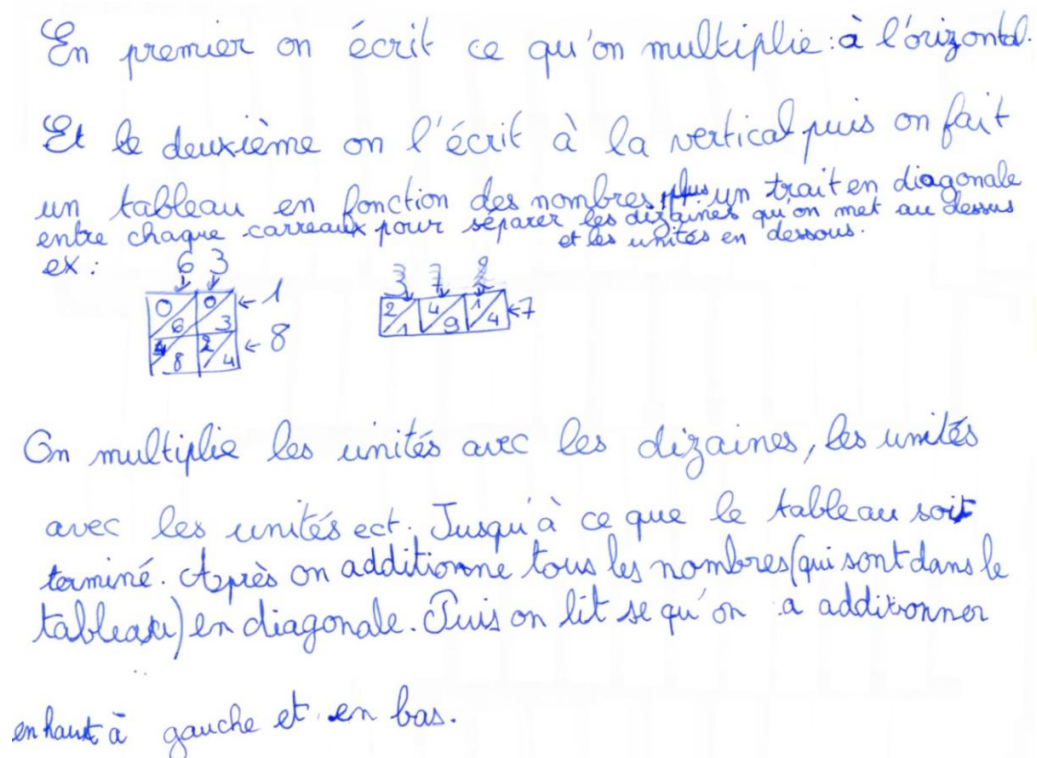 En premier on écrit ce qu'on multiplie : à l'orizontal.
Et le deuxième on l'écrit à la vertical puis on fait
un tableau en fonction des nombres plus un trait en diagonale
entre chaque carreaux pour séparer les dizaines qu'on met au dessus
et les unités en dessous.
ex :
6 3
0 6 0 3 ← 1
4 8 2 4 ← 8
3 7 2
2 1 4 9 1 4 ← 7
On multiplie les unités avec les dizaines, les unités
avec les unités ect. Jusqu'à ce que le tableau soit
terminé. Après on additionne tous les nombres (qui sont dans le
tableau) en diagonale. Puis on lit se qu'on a additionner
en haut à gauche et en bas.